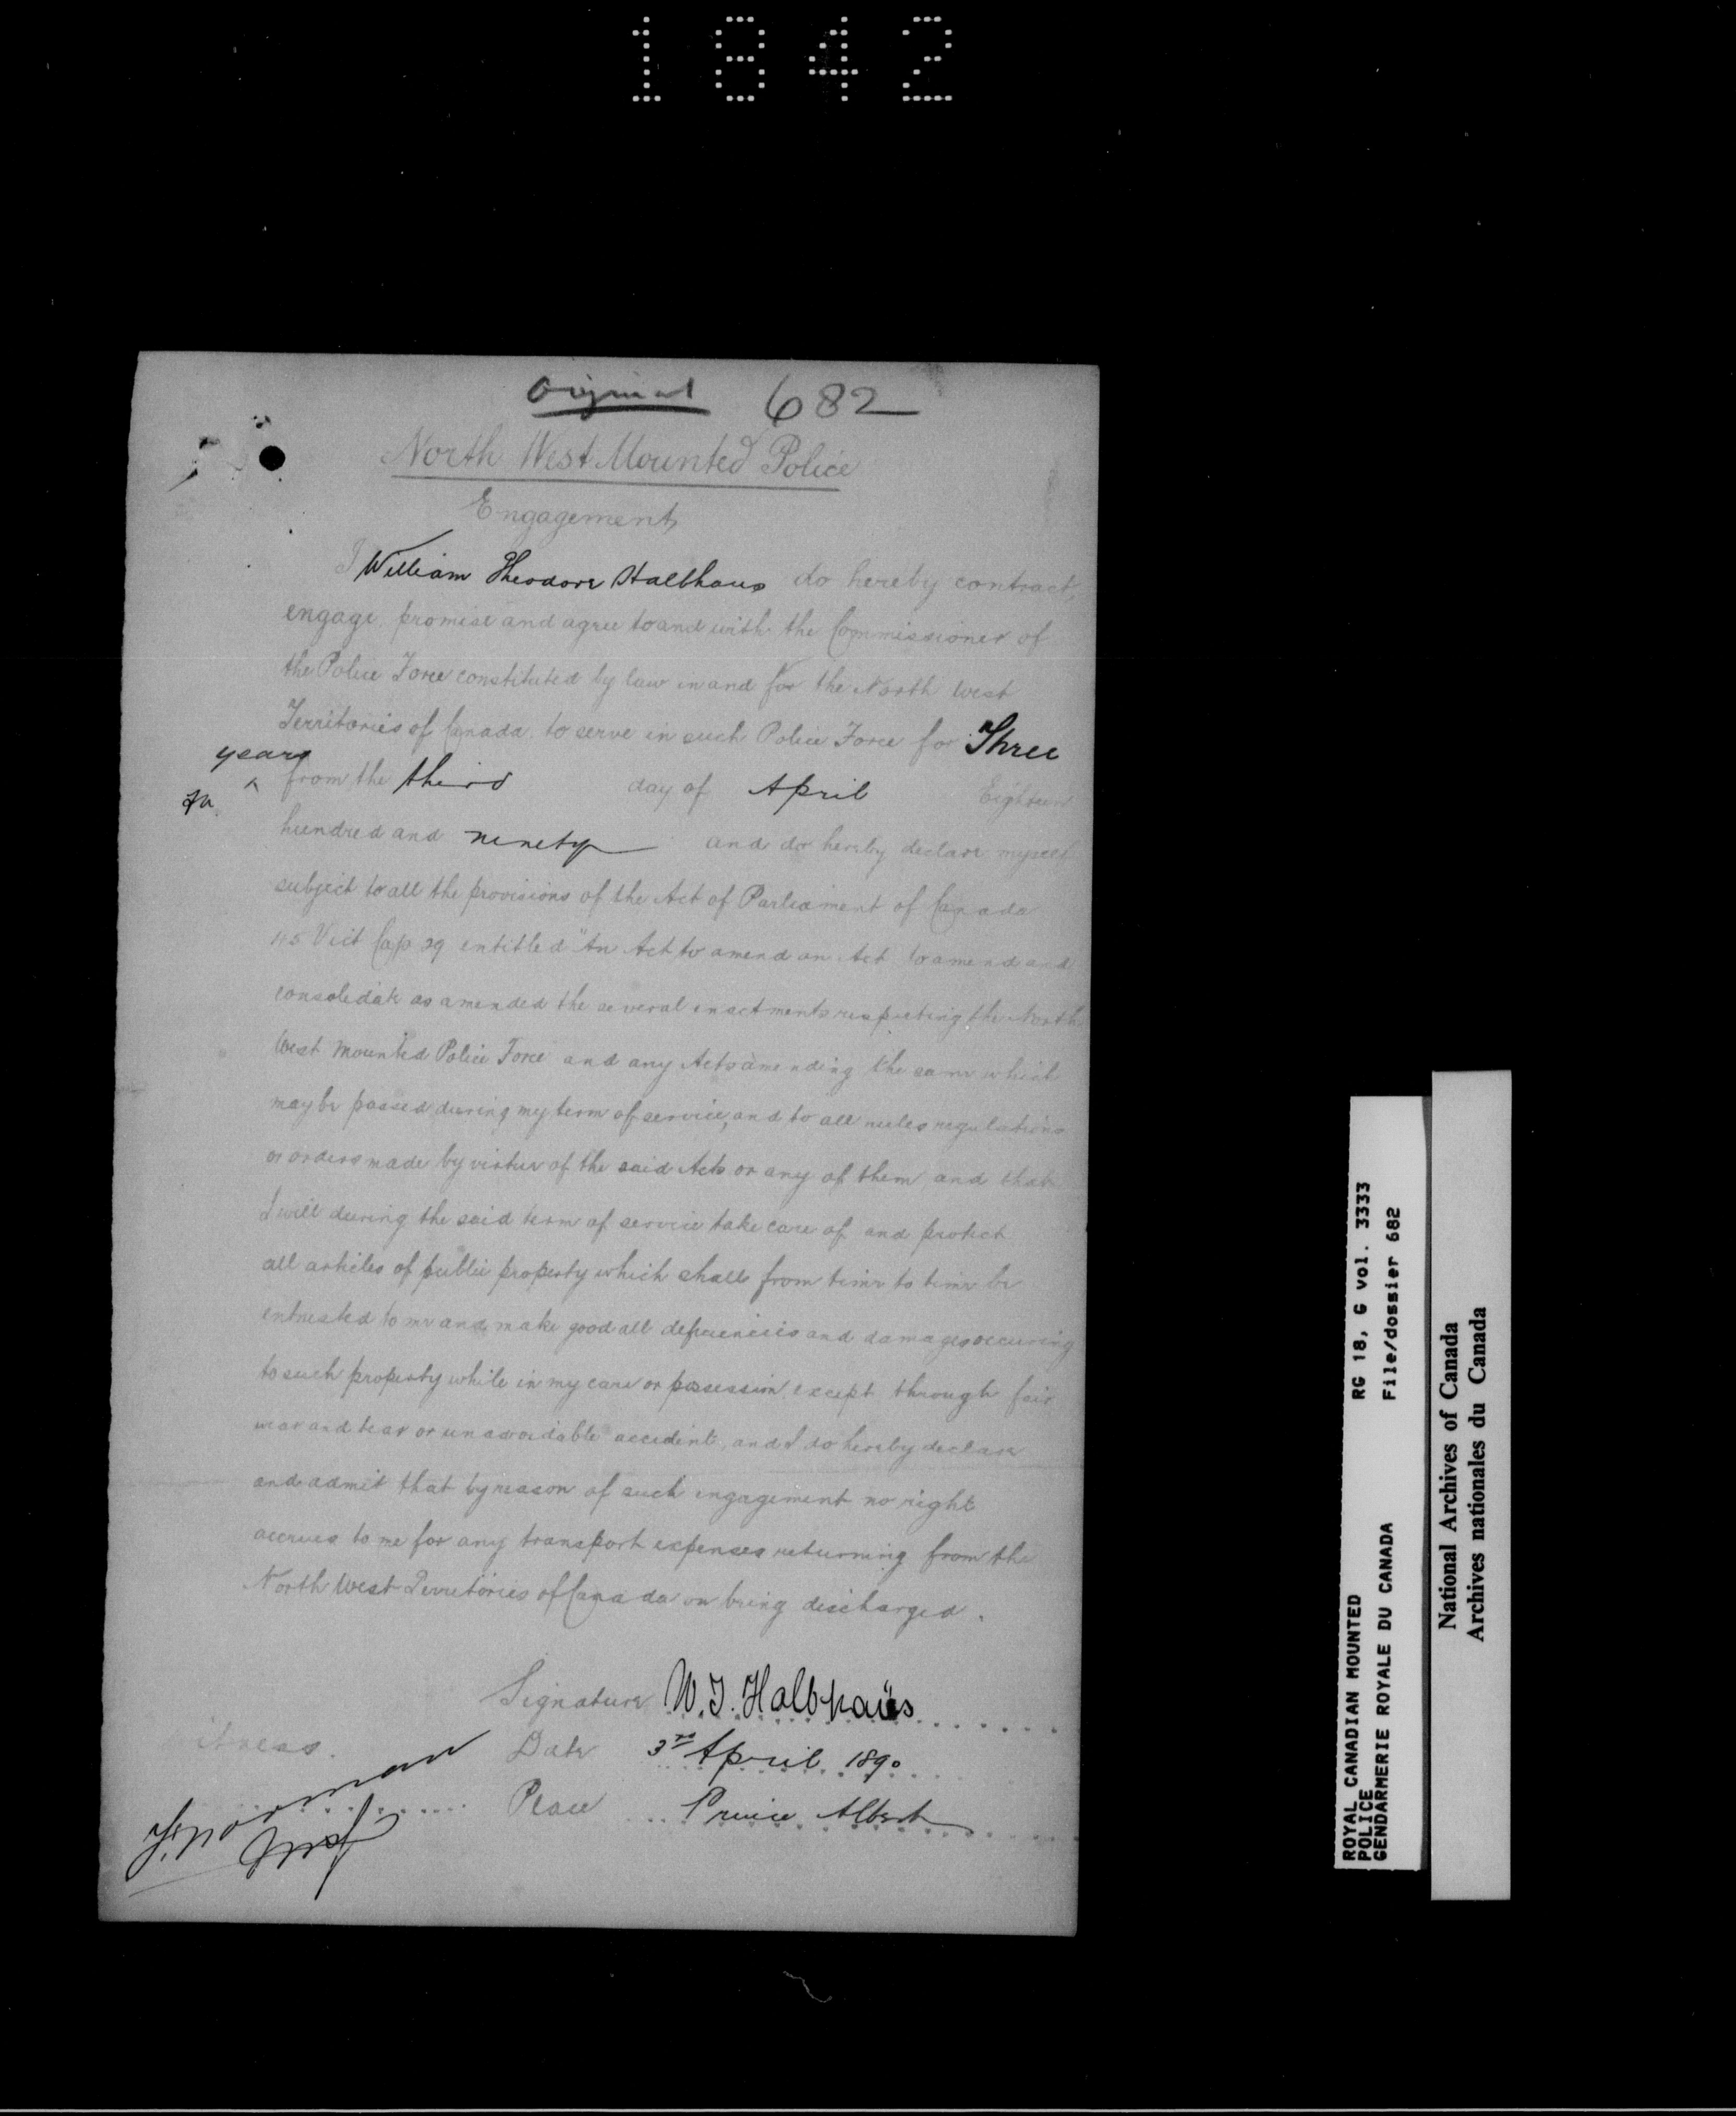 1842
Original 682
North West Mounted Police
Engagement
I William Theodore Halbhaus do hereby contract,
engage, promise and agree to and with the Commissioner of
the Police Force constituted by law in and for the North West
Territories of Canada, to serve in such Police Force for Three
years
from the third day of April Eighteen
hundred and ninety and do hereby declare myself
subject to all the provisions of the Act of Parliament of Canada
45 Vict Cap 29 entitled "An Act to amend an Act to amend and
consolidate as amended the several enactments respecting the North
West Mounted Police Force and any Acts amending the same which
may be passed during my term of service, and to all rules regulations
or orders made by virtue of the said Acts or any of them and that
I will during the said term of service take care of and protect
all articles of public property which shall from time to time be
entrusted to me and make good all deficiencies and damages occuring
to such property while in my care or possession except through fair
wear and tear or unavoidable accident, and I do hereby declare
and admit that by reason of such engagement no right
accrues to me for any transport expenses returning from the
North West Territories of Canada on being discharged.
Signature W. T. Halbhaüs
Date 3rd April 1890
Place Prince Albert
ROYAL CANADIAN MOUNTED RG 18, G vol. 3333
POLICE
GENDARMERIE ROYALE DU CANADA File/dossier 682
National Archives of Canada
Archives nationales du Canada